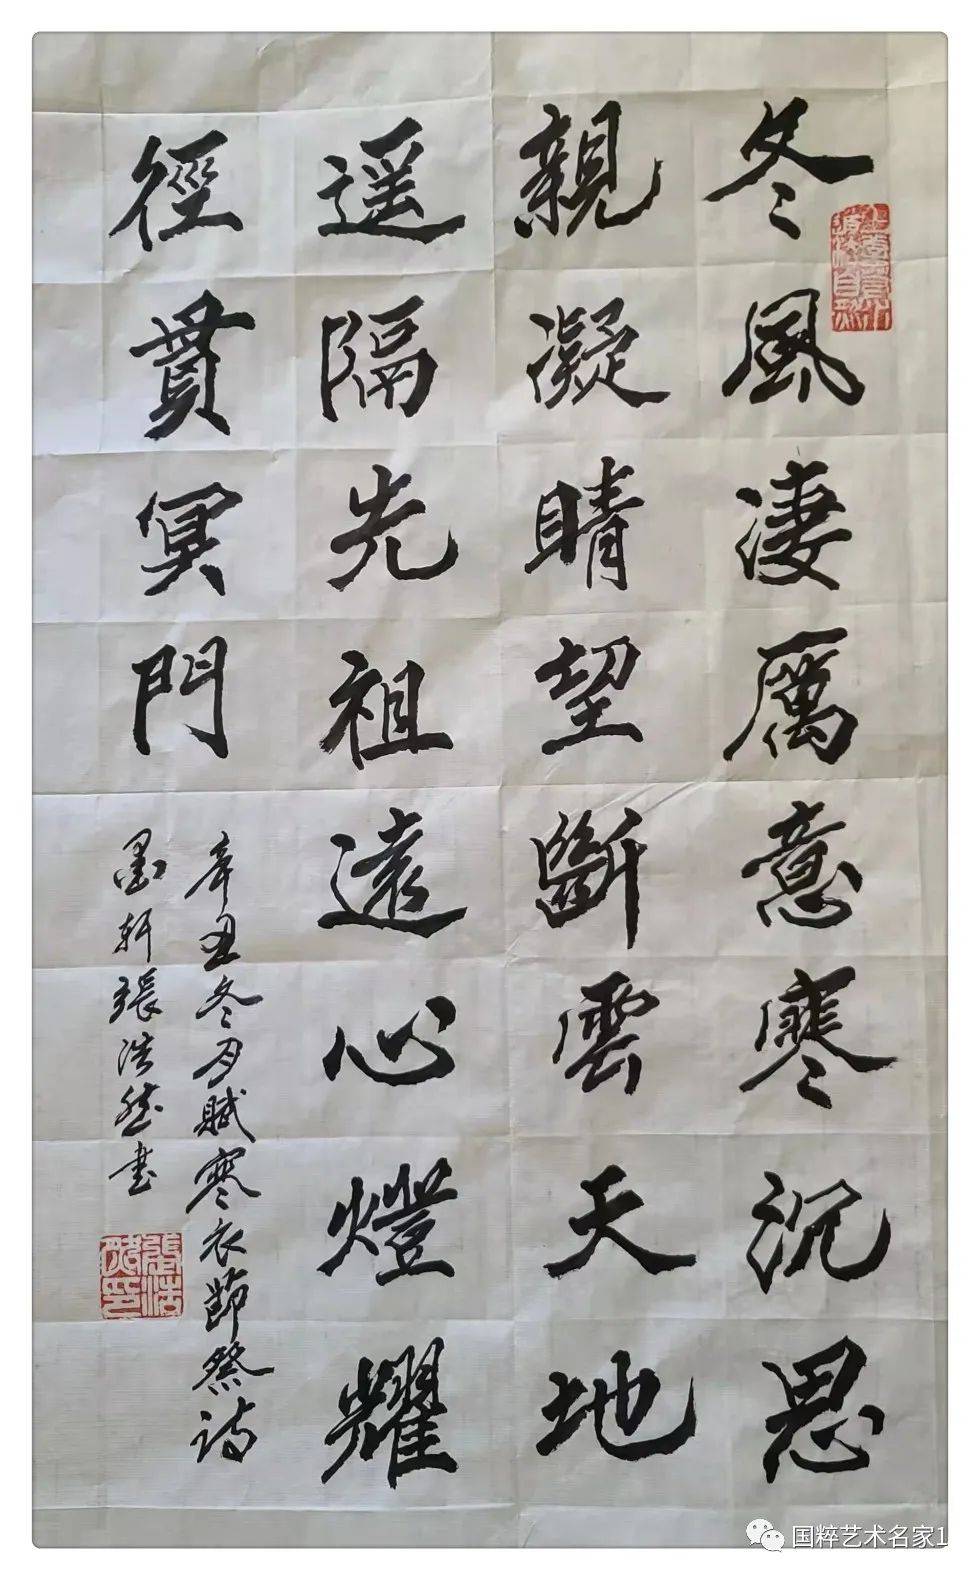 冬風淒厲意寒沉思
親凝睛望斷雲天地
遥隔先祖遠心燈耀
徑貫冥門
辛丑冬月賦寒衣節祭詩
墨軒張浩然書
国粹艺术名家1